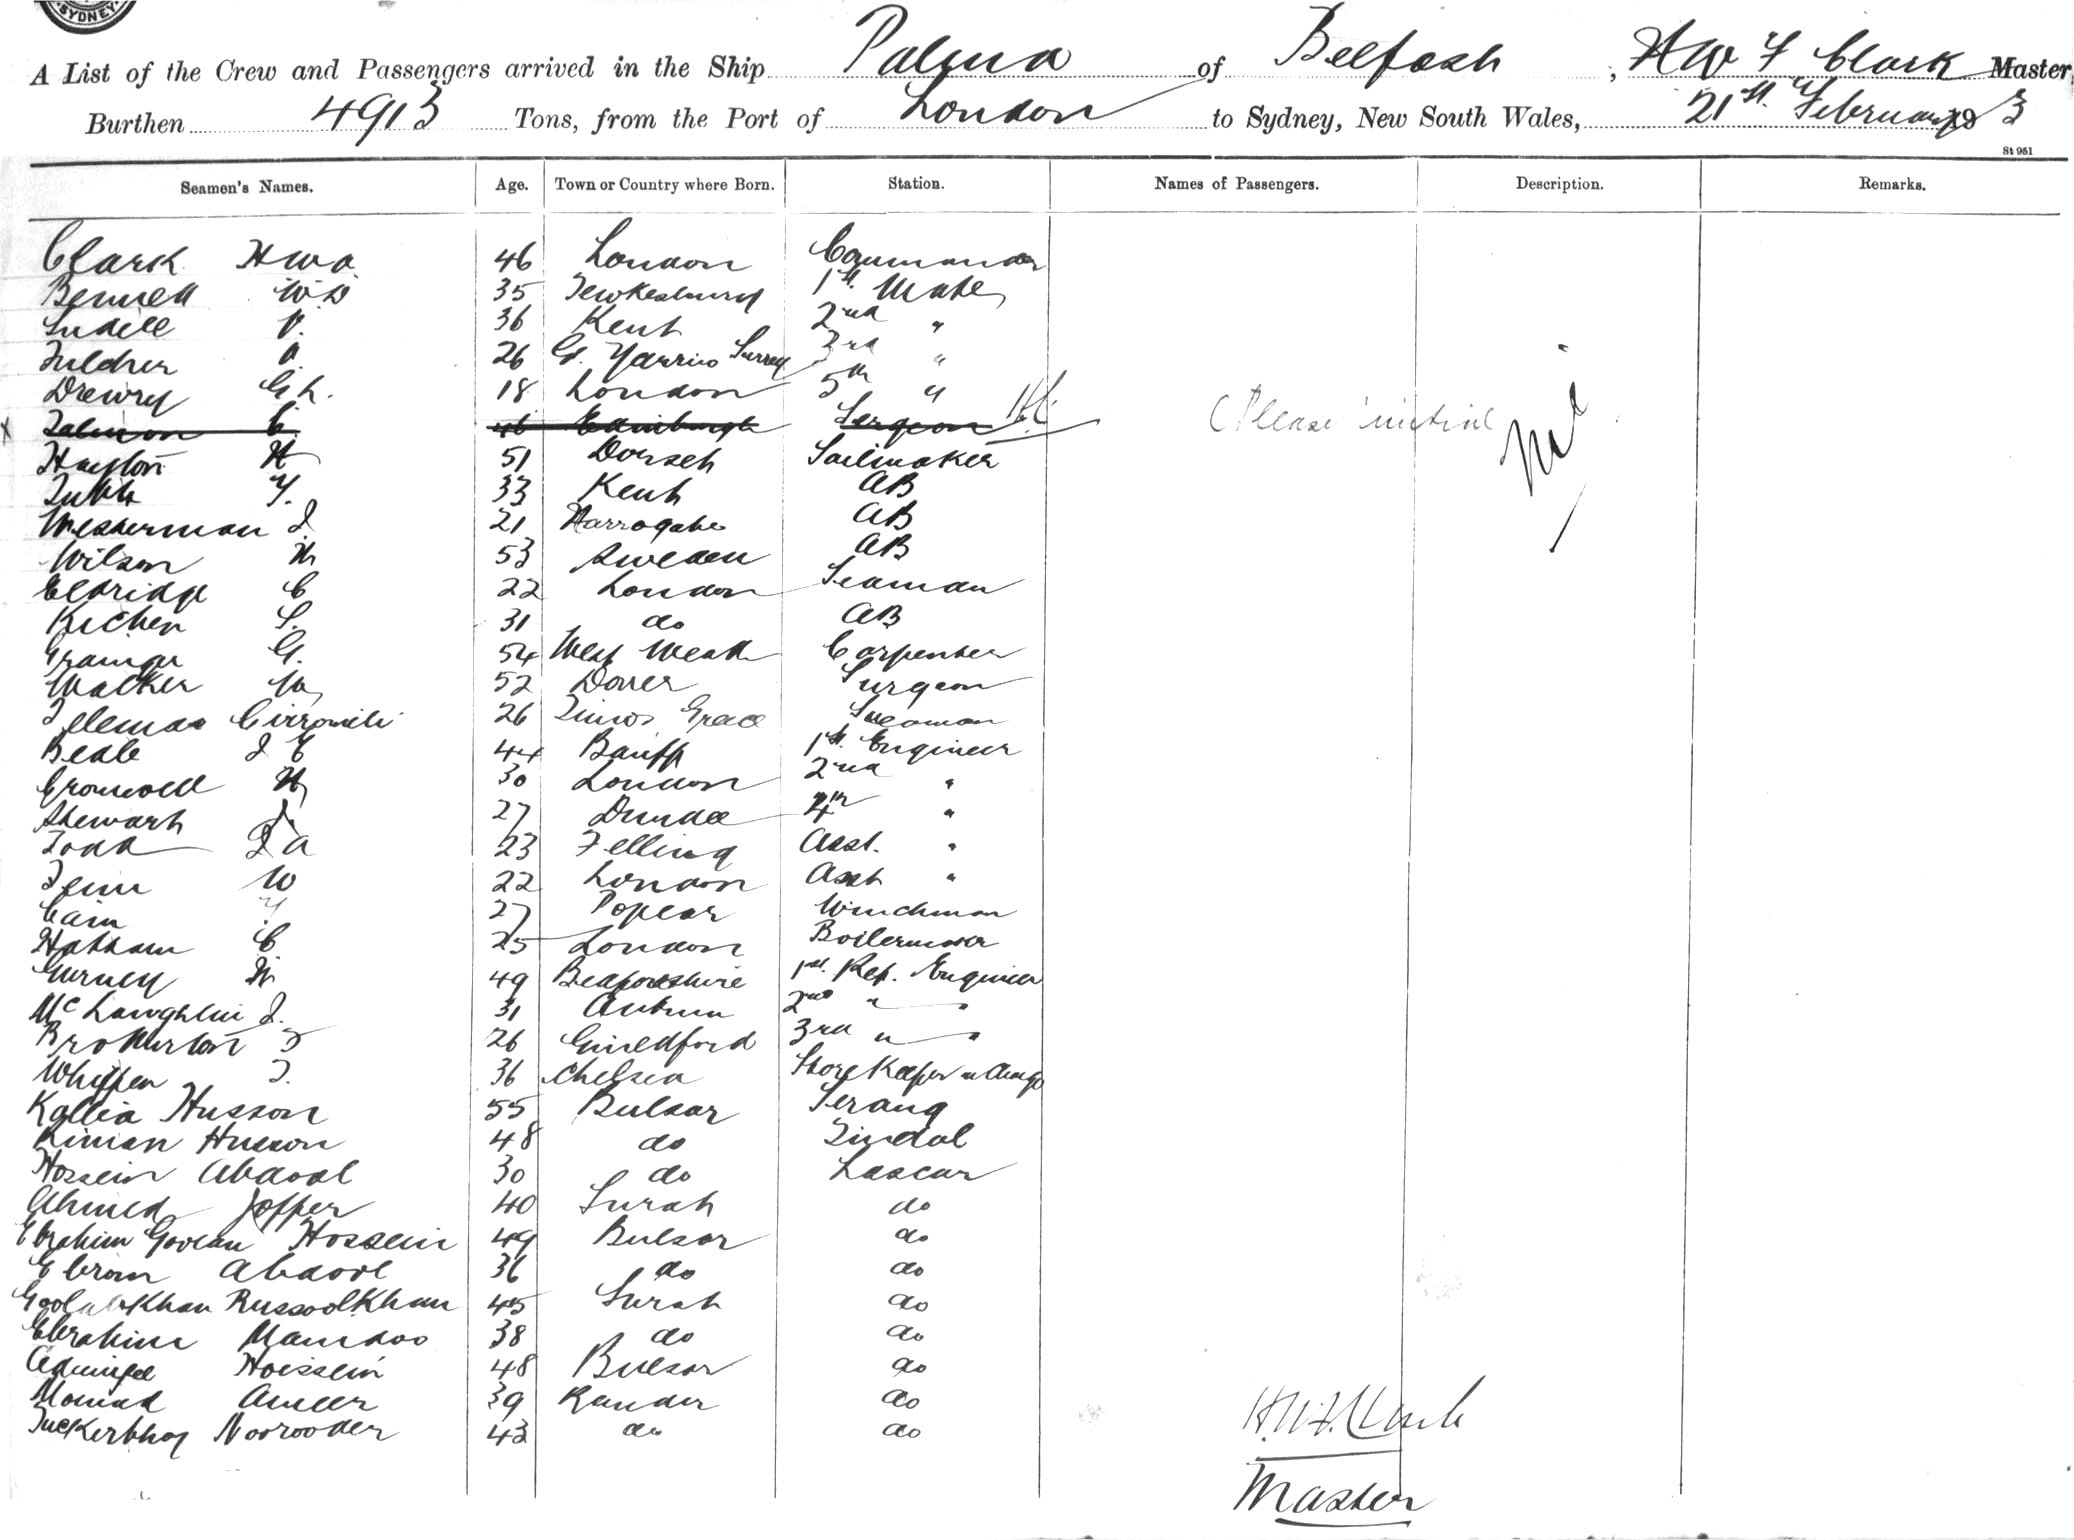 SYDNEY
A List of the Crew and Passengers arrived in the Ship Palma of Belfast, H W F Clark Master
Burthen 4913 Tons, from the Port of London to Sydney, New South Wales, 21st February 19 3
St 961
Seamen's Names. Age. Town or Country where Born. Station. Names of Passengers. Description. Remarks.
Clark 46 London Commander
Bennett W D 35 Tewkesbury 1st Mate
V. 36 Kent 2nd "
A. 26 Surrey 3rd "
Drewry G L. 18 London 5th "
x C. 46 Edinburgh Surgeon (Please initial Nil
H 51 Dorset Sailmaker
33 Kent AB
Westerman J 21 Harrogate AB
Wilson 53 Sweden AB
Eldridge C 22 London Seaman
Kichen S. 31 do AB
Grainger G. 54 West Carpenter
Walker W 52 Dover Surgeon
26 Greece Seaman
Beale J E 44 Banff 1st Engineer
H 30 London 2nd "
Stewart J. 27 Dundee 4th "
Todd J A 23 Felling Asst. "
Fenn W 22 London Asst "
Cain 27 Poplar Winchman
C 25 London Boilermaker
Gurney W. 49 Bedfordshire 1st. Ref. Engineer
McLaughlin J. 31 2nd " "
Brotherton 26 Guildford 3rd " "
Whippen 36 Chelsea Store Keeper
Kallia Husson 55 Bulsar Serang
Husson 48 do Tindal
Hossein Abdool 30 do Lascar
Ahmed Joffer 40 Surat do
Ebrahim Hossein 49 Bulsar do
Ebrom Abdool 36 do do
RussoolKhan 45 Surat do
Ebrahim Mamdoo 38 do do
Hoissein 48 Bulsar do
Ameer 39 Rander do
Noorooden 43 do do
H.W.F. Clark
Master